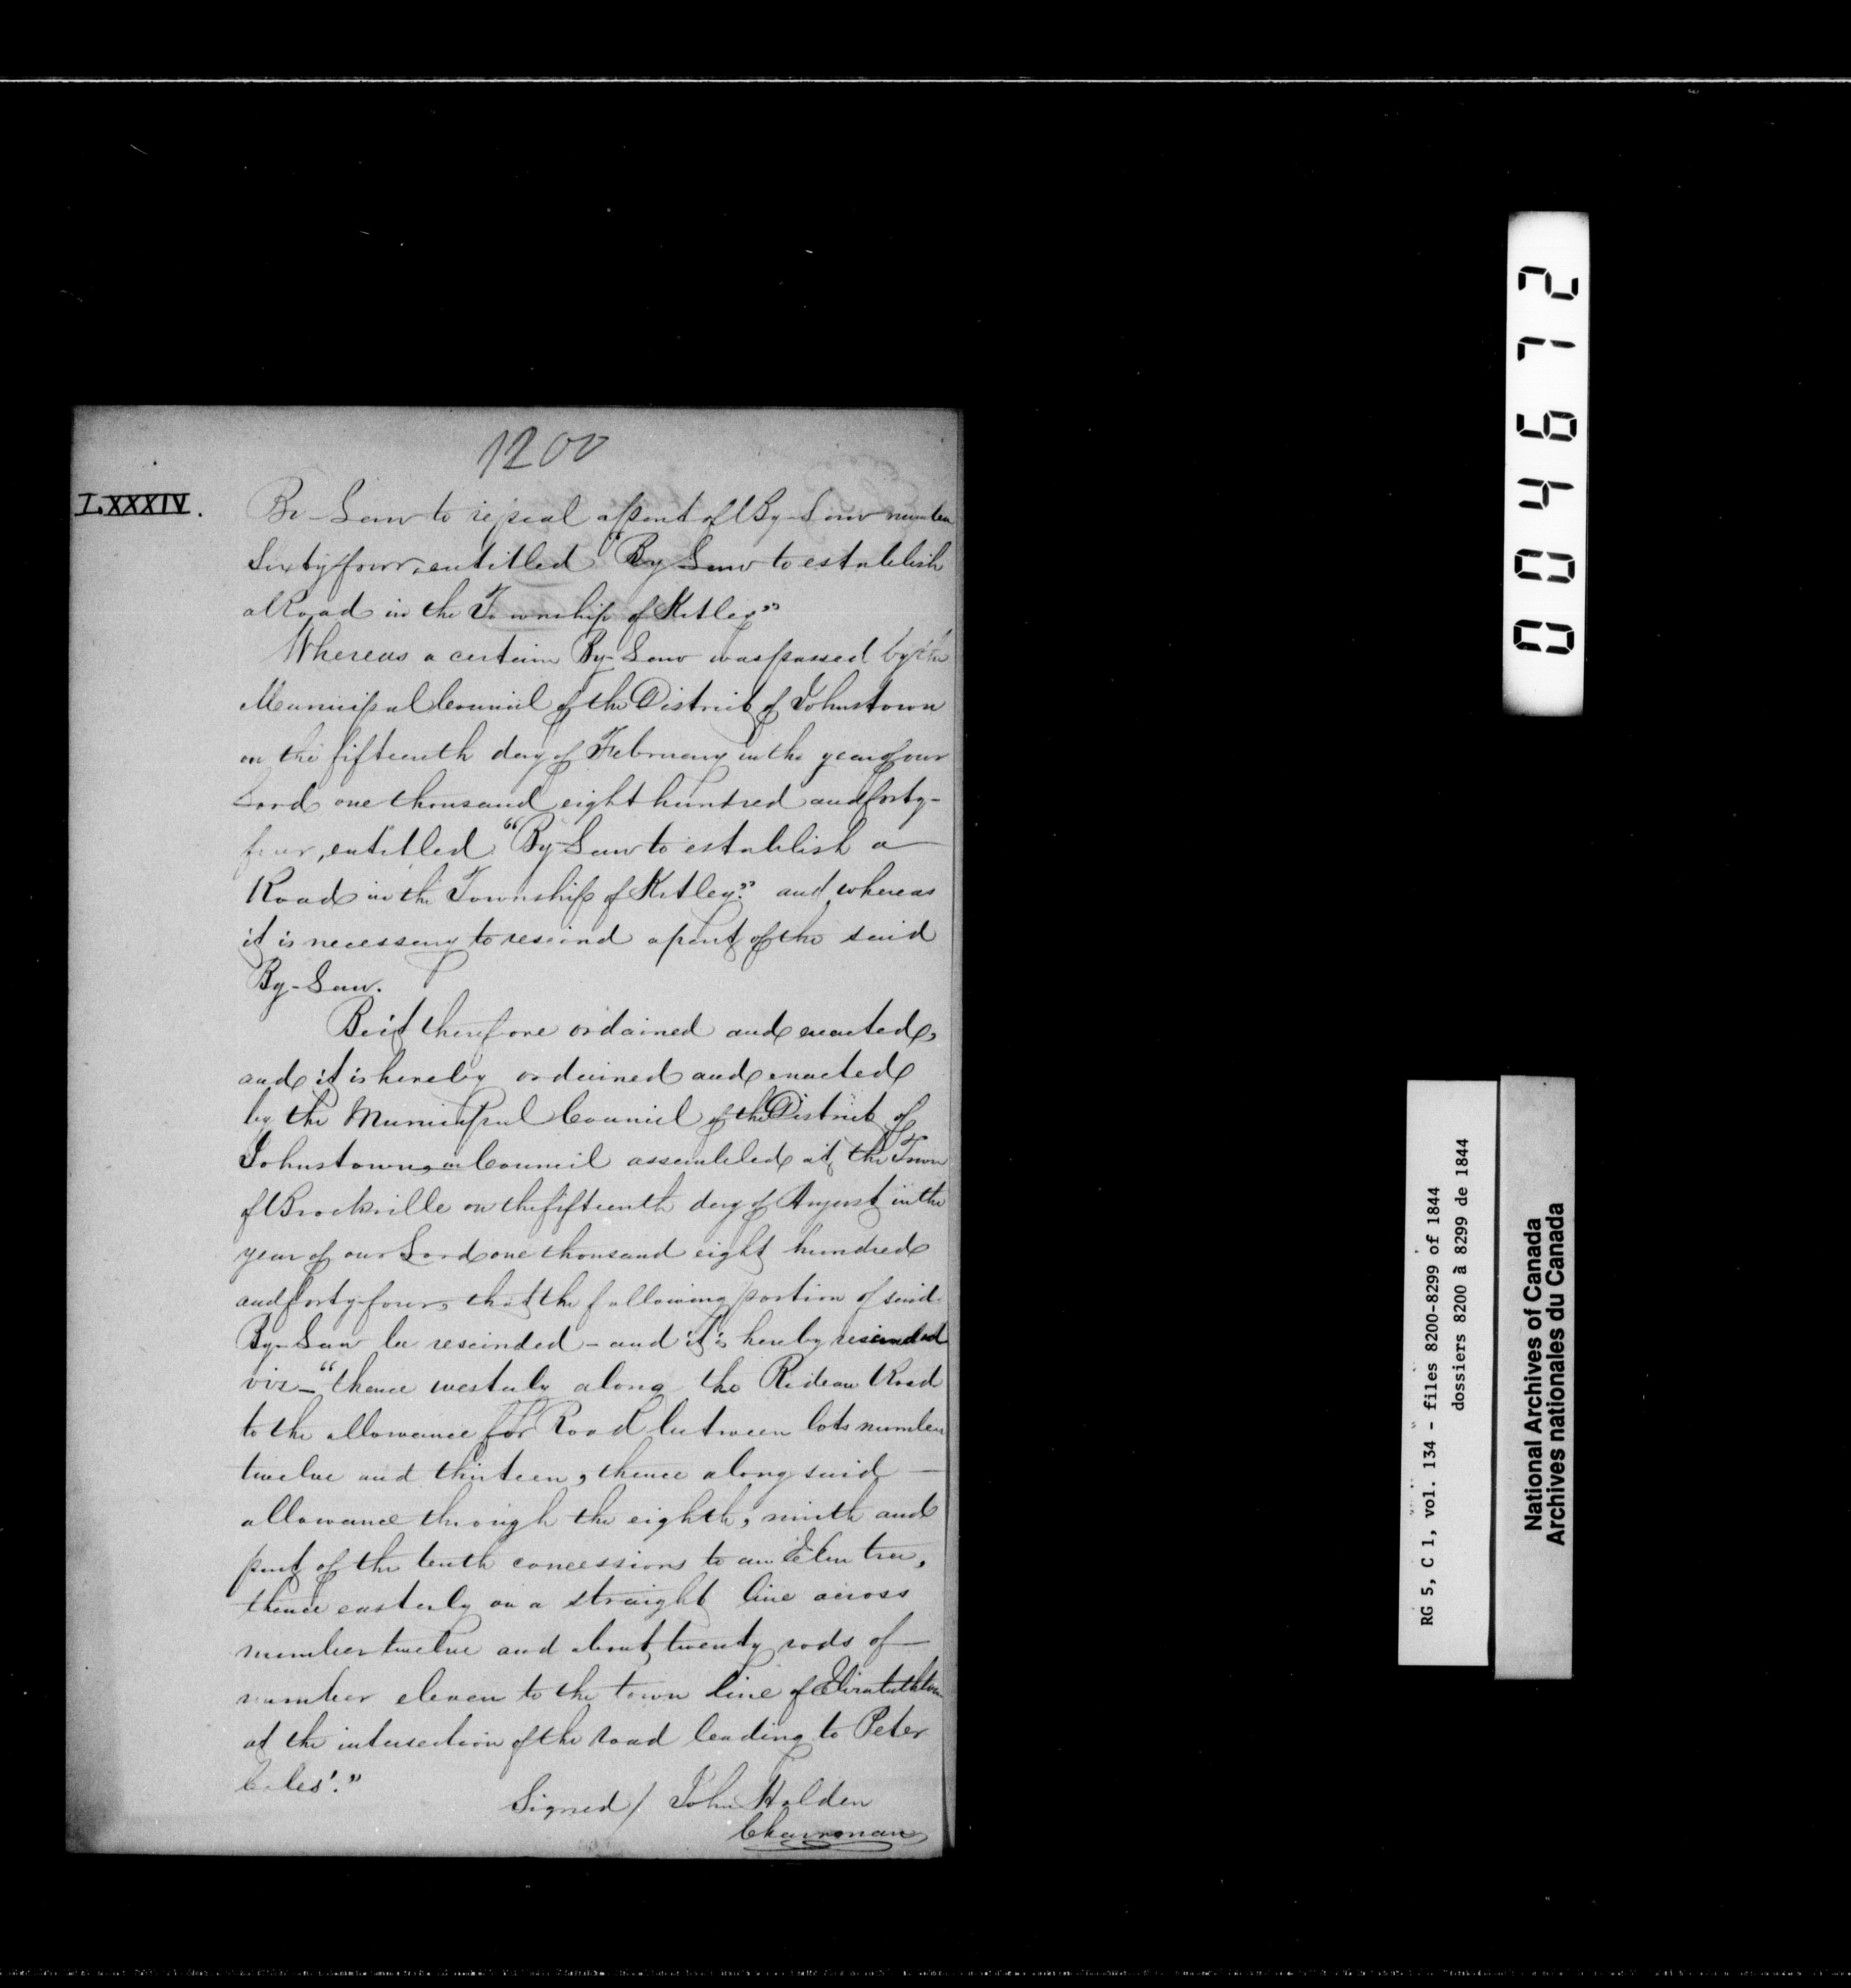 1200
LXXXIV.
By-Law to repeal a part of By-Law number
Sixty four, entitled "By Law to establish
a Road in the Township of Kitley"
Whereas a certain By-Law was passed by the
Municipal Council of the District of Johnstown
on the fifteenth day of February in the year of our
Lord one thousand eight hundred and forty-
four, entitled "By-Law to establish a
Road in the Township of Kitley." and whereas
it is necessary to rescind a part of the said
By-Law.
Be it therefore ordained and enacted,
and it is hereby ordained and enacted
by the Municipal Council of the District of
Johnstown, in Council assembled at the Town
of Brockville on the fifteenth day of August in the
year of our Lord one thousand eight hundred
and forty-four, that the following portion of said
By-Law be rescinded - and it is hereby rescinded
viz - "thence westerly along the Rideau Road
to the allowance for Road between lots number
twelve and thirteen, thence along said
allowance through the eighth, ninth and
part of the tenth concessions to an Elm tree,
thence easterly on a straight line across
number twelve and about twenty rods of
number eleven to the town line of Elizabethtown
at the intersection of the road leading to Peter
Coles'."
Signed / John Holden
Chairman
004672
RG 5, C 1, vol. 134 - files 8200-8299 of 1844
dossiers 8200 à 8299 de 1844
National Archives of Canada
Archives nationales du Canada